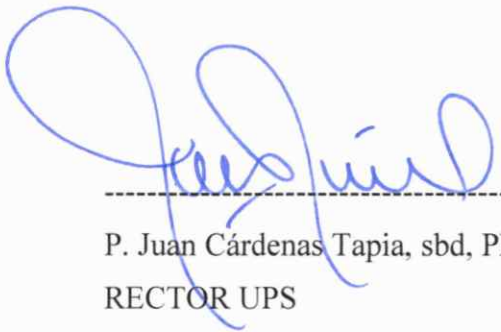 P. Juan Cárdenas Tapia, sbd,
RECTOR UPS